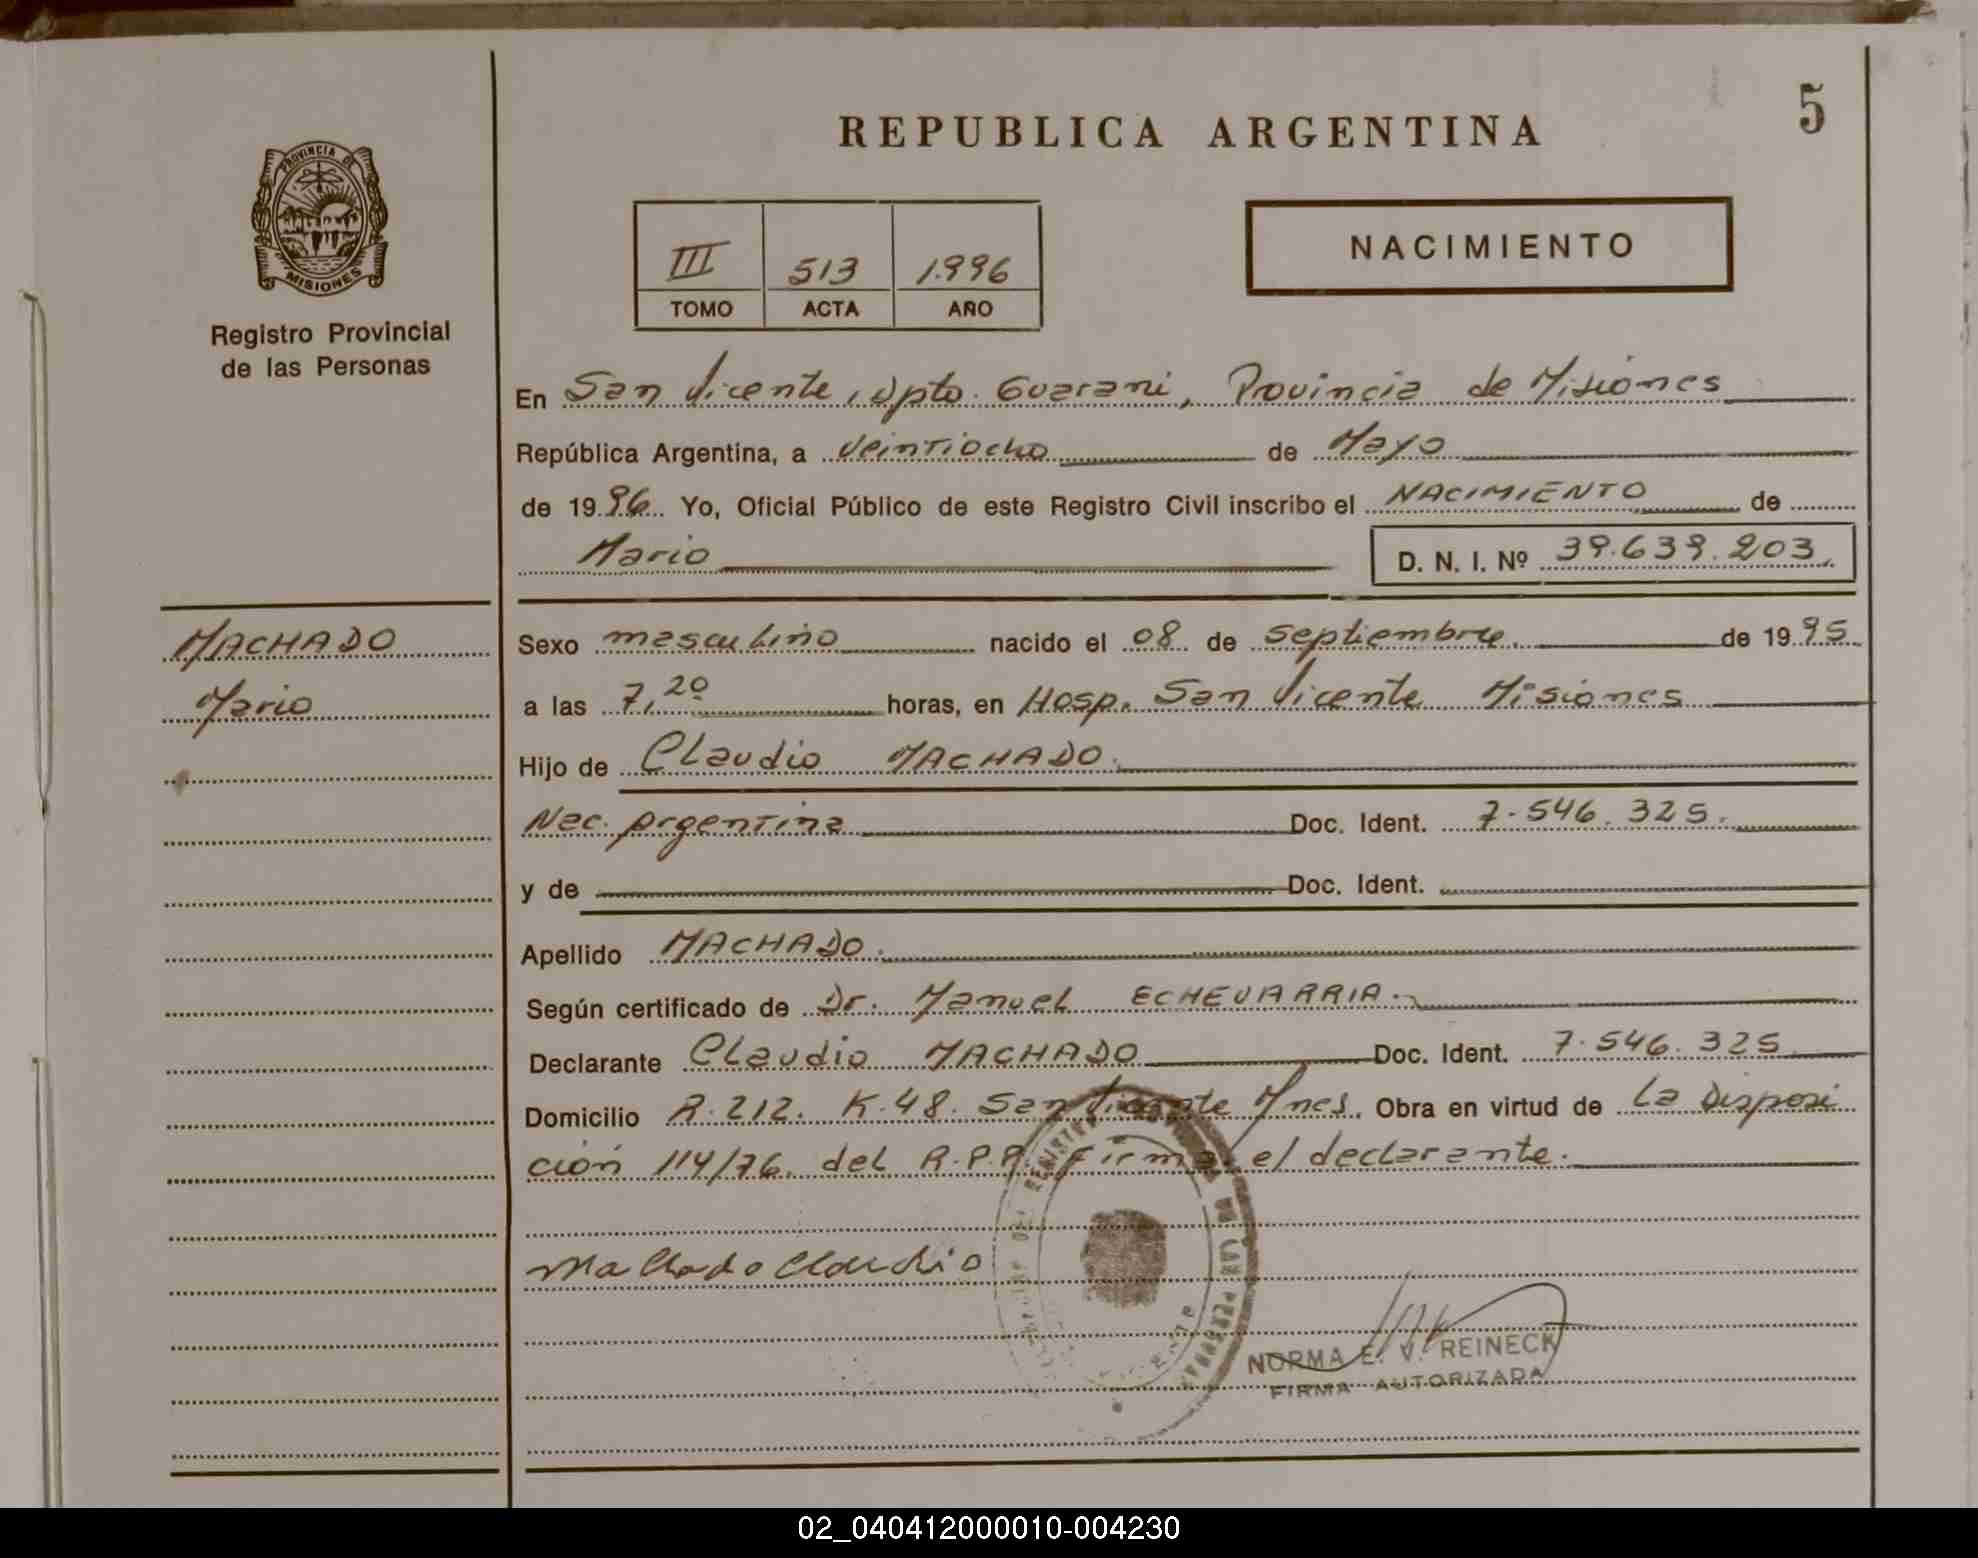 5
REPUBLICA ARGENTINA
PROVINCIA DE
MISIONES
Registro Provincial
de las Personas
III 513 1.996
TOMO ACTA AÑO
NACIMIENTO
En San Vicente, Dpto. Guarani, Provincia de Misiones
República Argentina, a Veintiocho de Mayo
de 1996 Yo, Oficial Público de este Registro Civil inscribo el NACIMIENTO de
Mario D. N. I. Nº 39.639.203.
MACHADO
Mario
Sexo masculino nacido el 08 de septiembre. de 1995
a las 7,20 horas, en Hosp. San Vicente Misiones
Hijo de Claudio MACHADO.
Nac. Argentina Doc. Ident. 7.546.325.
y de Doc. Ident.
Apellido MACHADO.
Según certificado de Dr. Manuel ECHEVARRIA.
Declarante Claudio MACHADO Doc. Ident. 7.546.325
Domicilio R.212. K.48. San Vicente Mnes. Obra en virtud de La Disposi
ción 114/76. del R.P.P. Firma el declarante.
Machado Claudio
REGISTRO DE LAS PERSONAS
NORMA E. V. REINECK
FIRMA AUTORIZADA
02_040412000010-004230